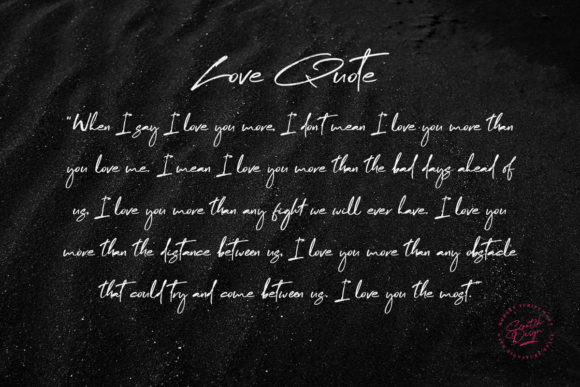 Love Quote
"When I say I love you more, I don't mean I love you more than
you love me. I mean I love you more than the bad days ahead of
us, I love you more than any fight we will ever have. I love you
more than the distance between us, I love you more than any obstacle
that could try and come between us. I love you the most."